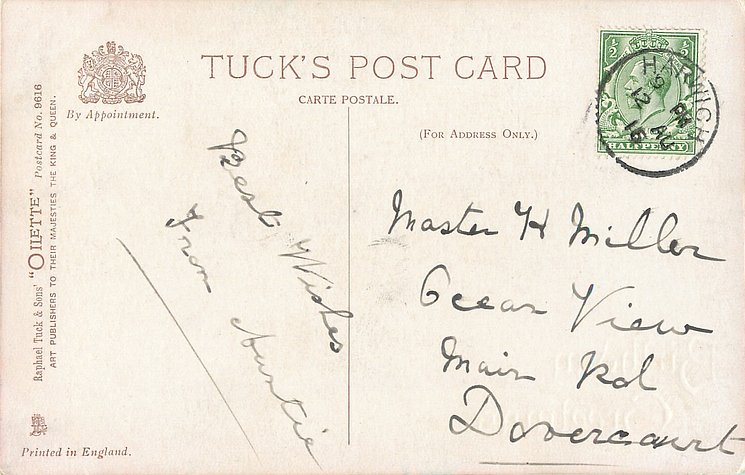 TUCK'S POST CARD
CARTE POSTALE.
By Appointment.
(FOR ADDRESS ONLY.)
Raphael Tuck & Sons' "OILETTE" Postcard No. 9616
ART PUBLISHERS TO THEIR MAJESTIES THE KING & QUEEN.
Printed in England.
½ ½
HALFPENNY
HARWICH
9 PM
12 AU
16
Best Wishes
From Auntie
Master H Miller
Ocean View
Main Rd
Dovercourt